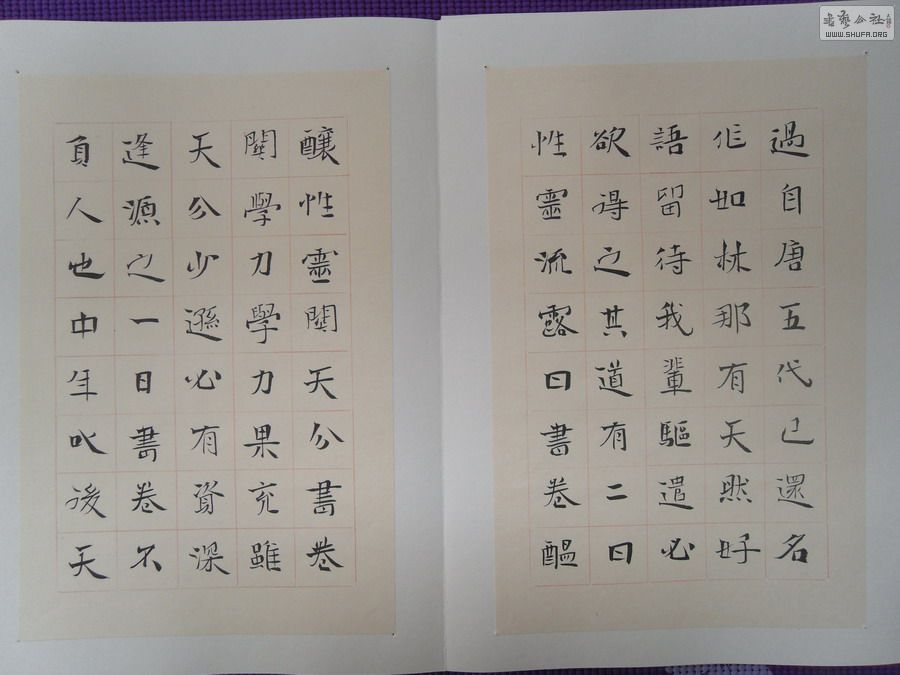 過自唐五代已還名
作如林那有天然好
語留待我輩驅遣必
欲得之其道有二曰
性靈流露曰書卷醞
釀性靈關天分書卷
關學力學力果充雖
天分少遜必有資深
逢源之一日書卷不
負人也中年以後天
書藝公社
WWW.SHUFA.ORG